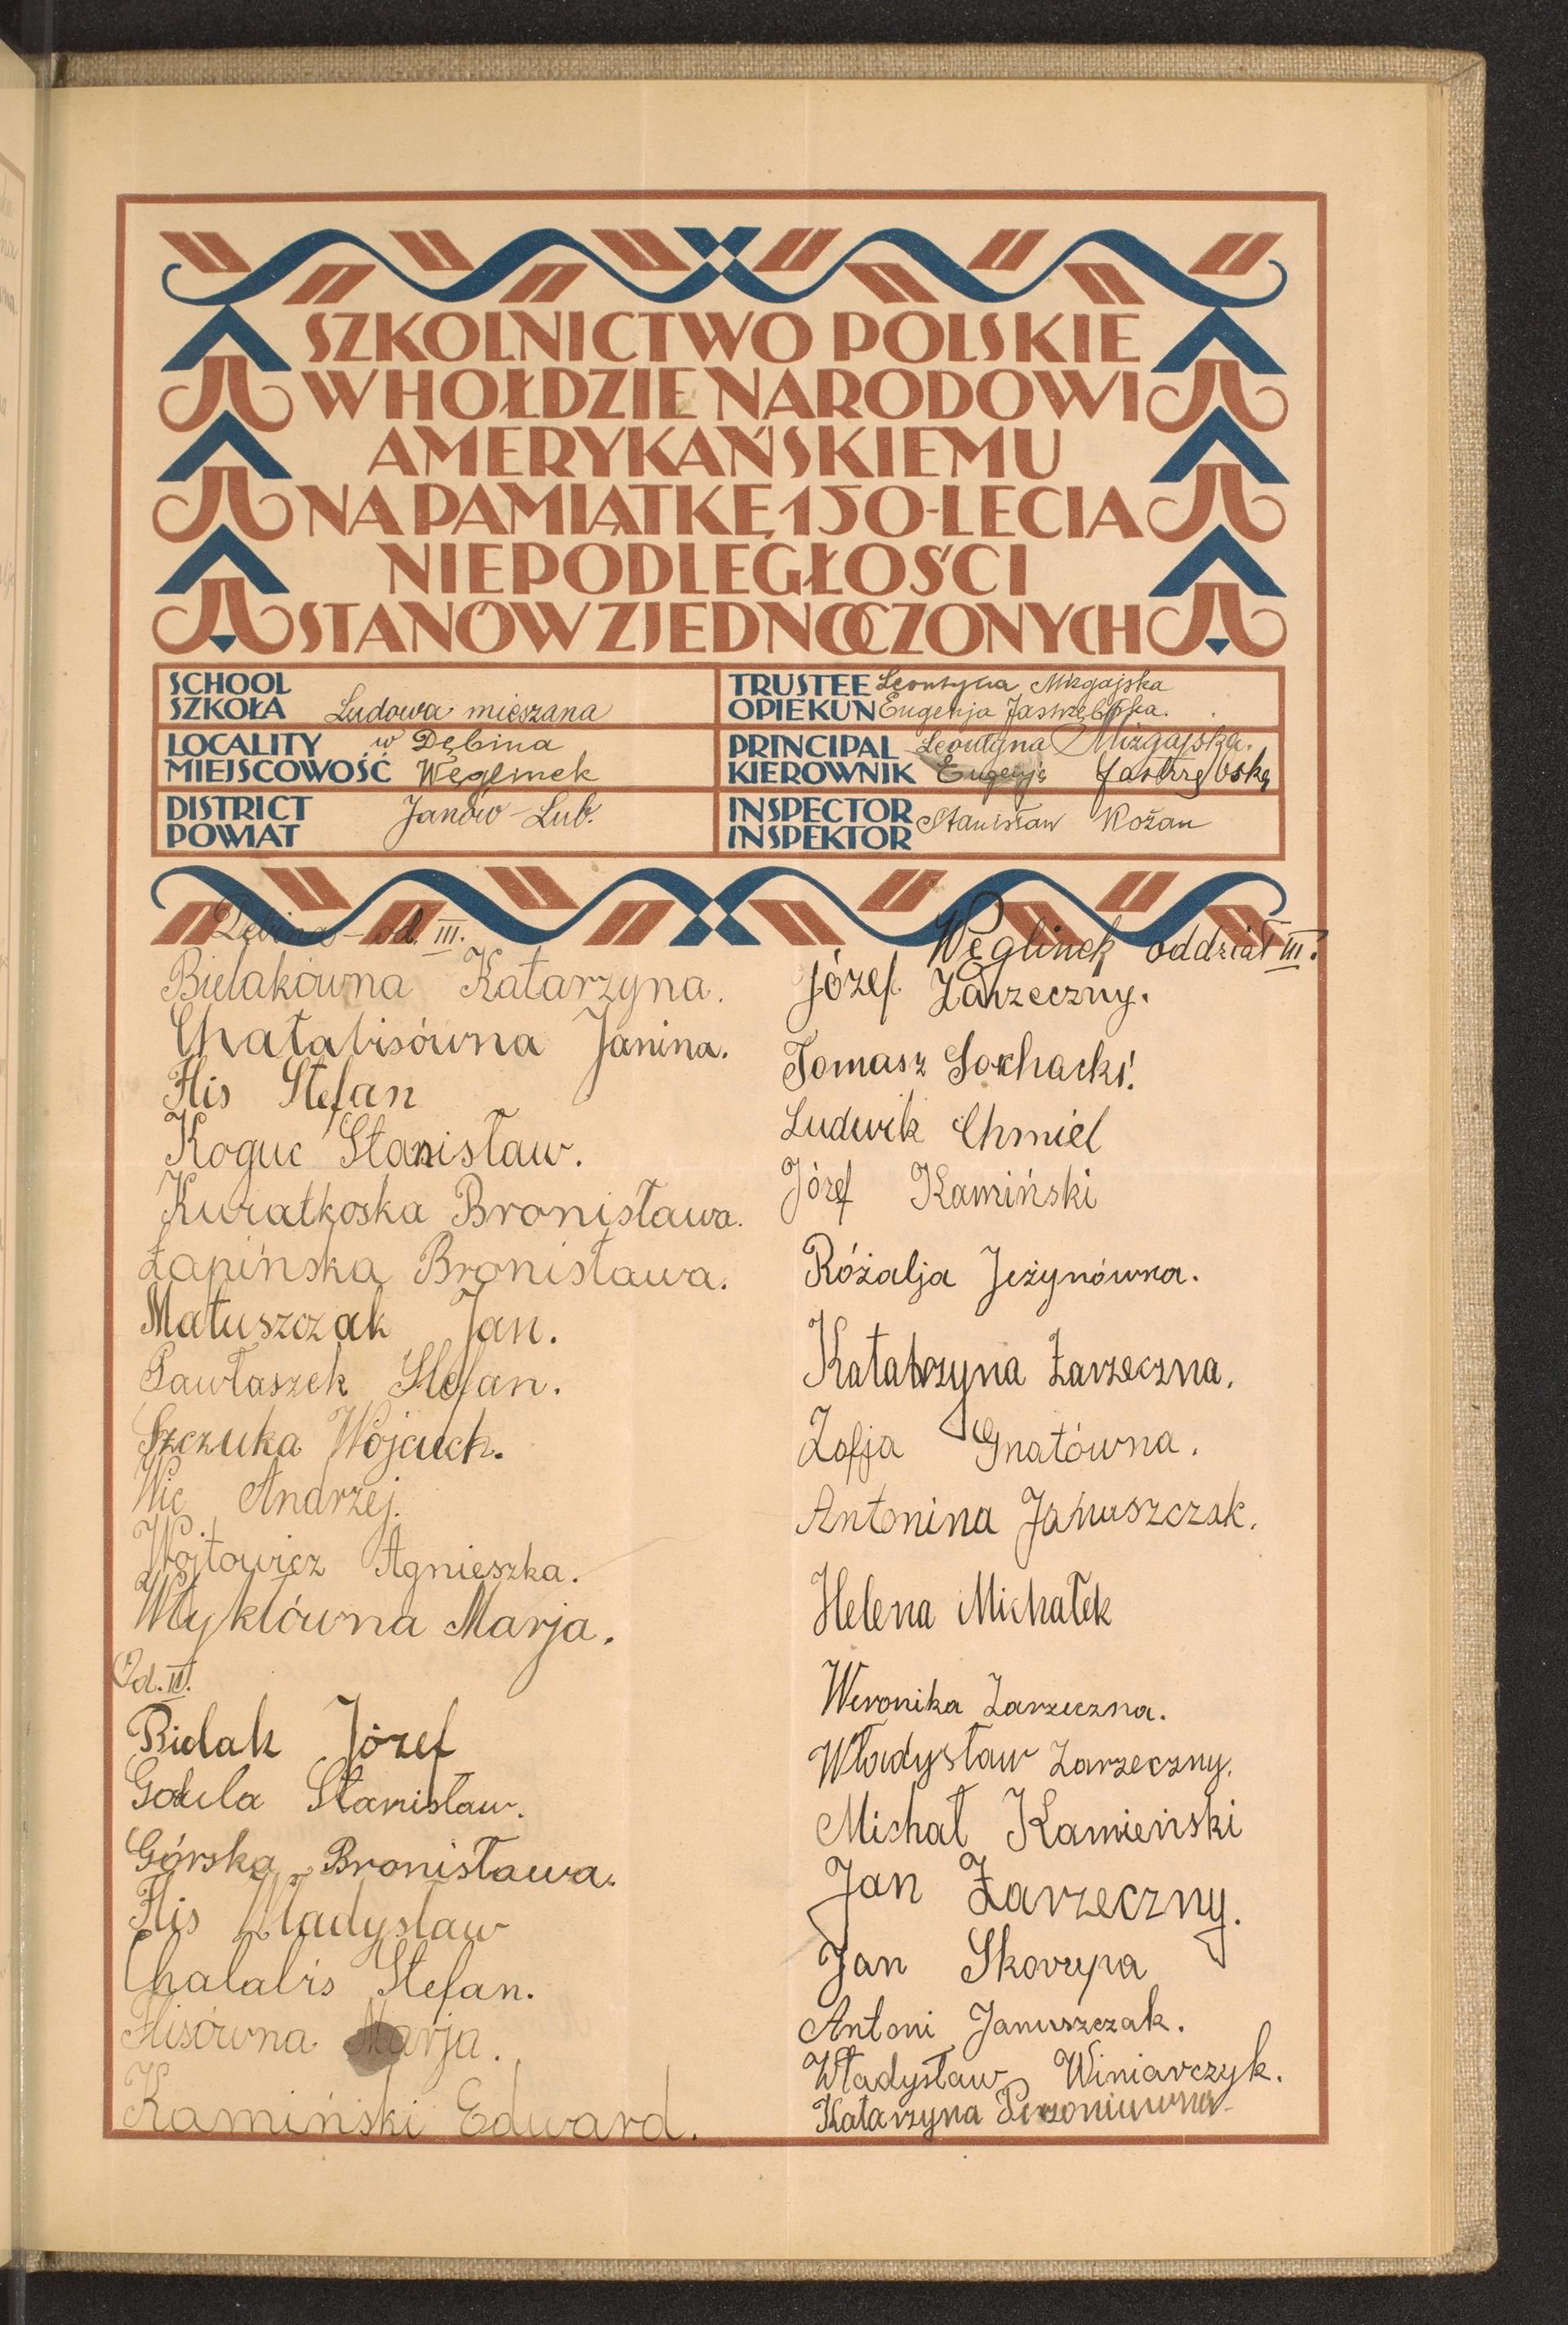 SZKOLNICTWO POLSKIE
W HOŁDZIE NARODOWI
AMERYKAŃSKIEMU
NA PAMIĄTKĘ 150-LECIA
NIEPODLEGŁOŚCI
STANÓW ZJEDNOCZONYCH
SCHOOL
SZKOŁA Ludowa mieszana
TRUSTEE Leontyna Mizgajska
OPIEKUN Eugenja Jastrzębska.
LOCALITY w Dębina
MIEJSCOWOŚĆ Węglinek
PRINCIPAL Leontyna Mizgajska.
KIEROWNIK Eugenja Jastrzębska
DISTRICT
POWIAT Janów-Lub.
INSPECTOR
INSPEKTOR Stanisław Kożan
Dębina – od. III.
Bielakówna Katarzyna.
Chałabisówna Janina.
Flis Stefan
Koguc Stanisław.
Kuratkoska Bronisława.
Łapińska Bronisława.
Matuszczak Jan.
Pawłaszek Stefan.
Szczuka Wojciech.
Wic Andrzej.
Wójtowicz Agnieszka.
Wtyklówna Marja.
Od. II.
Bielak Józef
Godula Stanisław.
Górska Bronisława.
Flis Władysław
Chalabis Stefan.
Flisówna Marja.
Kamiński Edward.
Węglinek oddział III.
Józef Zarzeczny.
Tomasz Sochacki.
Ludwik Chmiel
Józef Kamiński
Różalja Jeżynówna.
Katarzyna Zarzeczna.
Zofja Gnatówna.
Antonina Januszczak.
Helena Michałek
Weronika Zarzeczna.
Władysław Zarzeczny.
Michał Kamieński
Jan Zarzeczny.
Jan Skorupa
Antoni Januszczak.
Władysław Winiarczyk.
Katarzyna